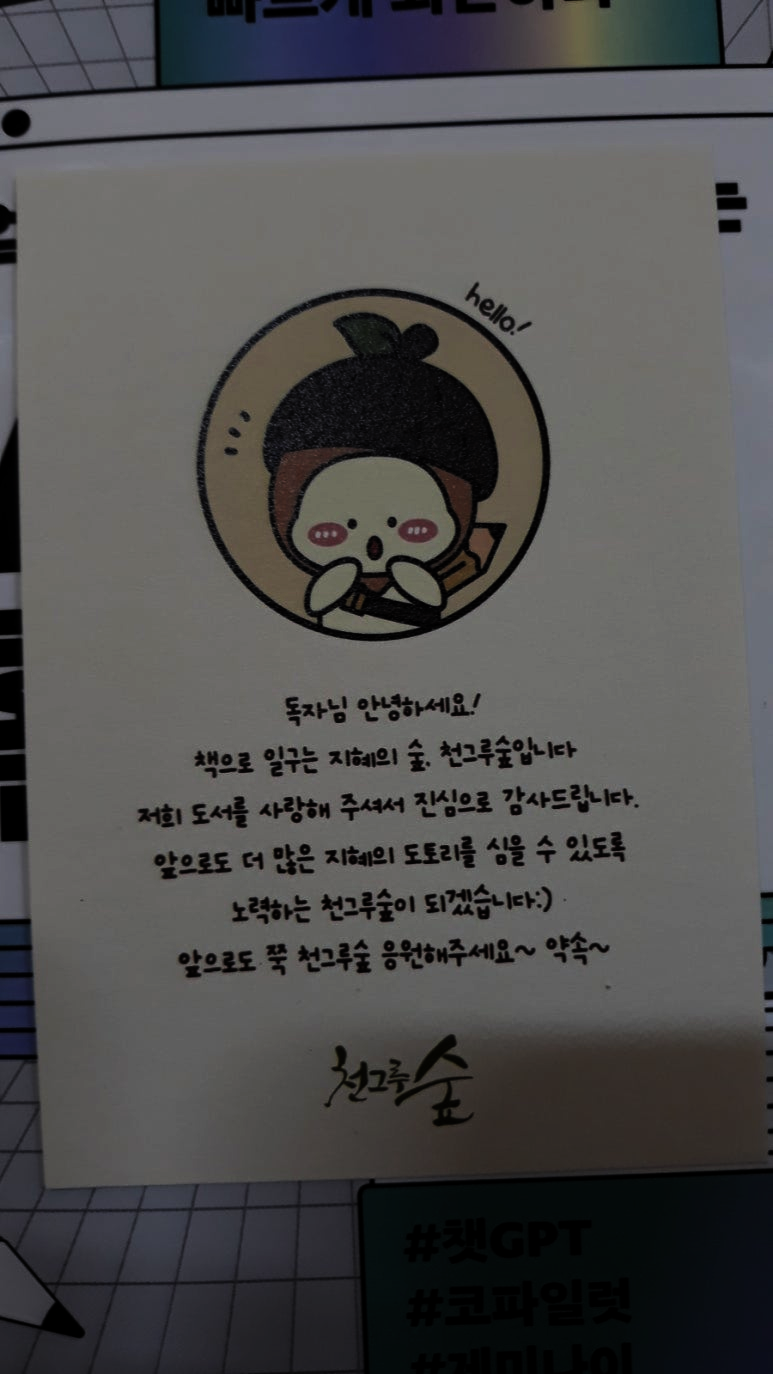 빠르게 화면이다
hello!
독자님 안녕하세요!
책으로 일구는 지혜의 숲, 천그루숲입니다
저희 도서를 사랑해 주셔서 진심으로 감사드립니다.
앞으로도 더 많은 지혜의 도토리를 심을 수 있도록
노력하는 천그루숲이 되겠습니다:)
앞으로도 쭉 천그루숲 응원해주세요~ 약속~
천그루숲
#챗GPT
#코파일럿
#제미나이